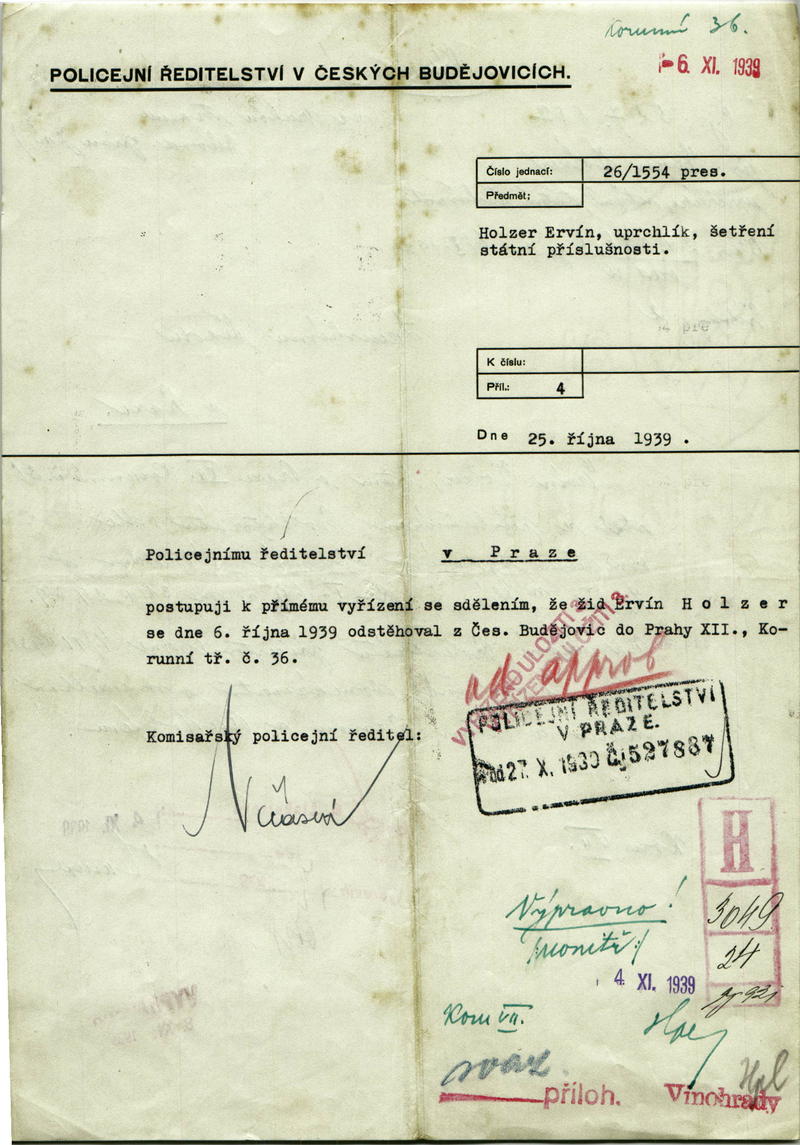 Korunní 36.
- 6. XI. 1939
POLICEJNÍ ŘEDITELSTVÍ V ČESKÝCH BUDĚJOVICÍCH.
Číslo jednací: 26/1554 pres.
Předmět:
Holzer Ervín, uprchlík, šetření
státní příslušnosti.
K číslu:
Příl.: 4
Dne 25. října 1939 .
Policejnímu ředitelství v Praze
postupuji k přímému vyřízení se sdělením, že žid Ervín Holzer
se dne 6. října 1939 odstěhoval z Čes. Budějovic do Prahy XII., Ko-
runní tř. č. 36.
ad approb
Komisařský policejní ředitel:
POLICEJNÍ ŘEDITELSTVÍ
V PRAZE.
27. X. 1939 Čj 527887
H
Výpravno!
3049
24
4 XI. 1939
Kom VII.
příloh.
Vinohrady